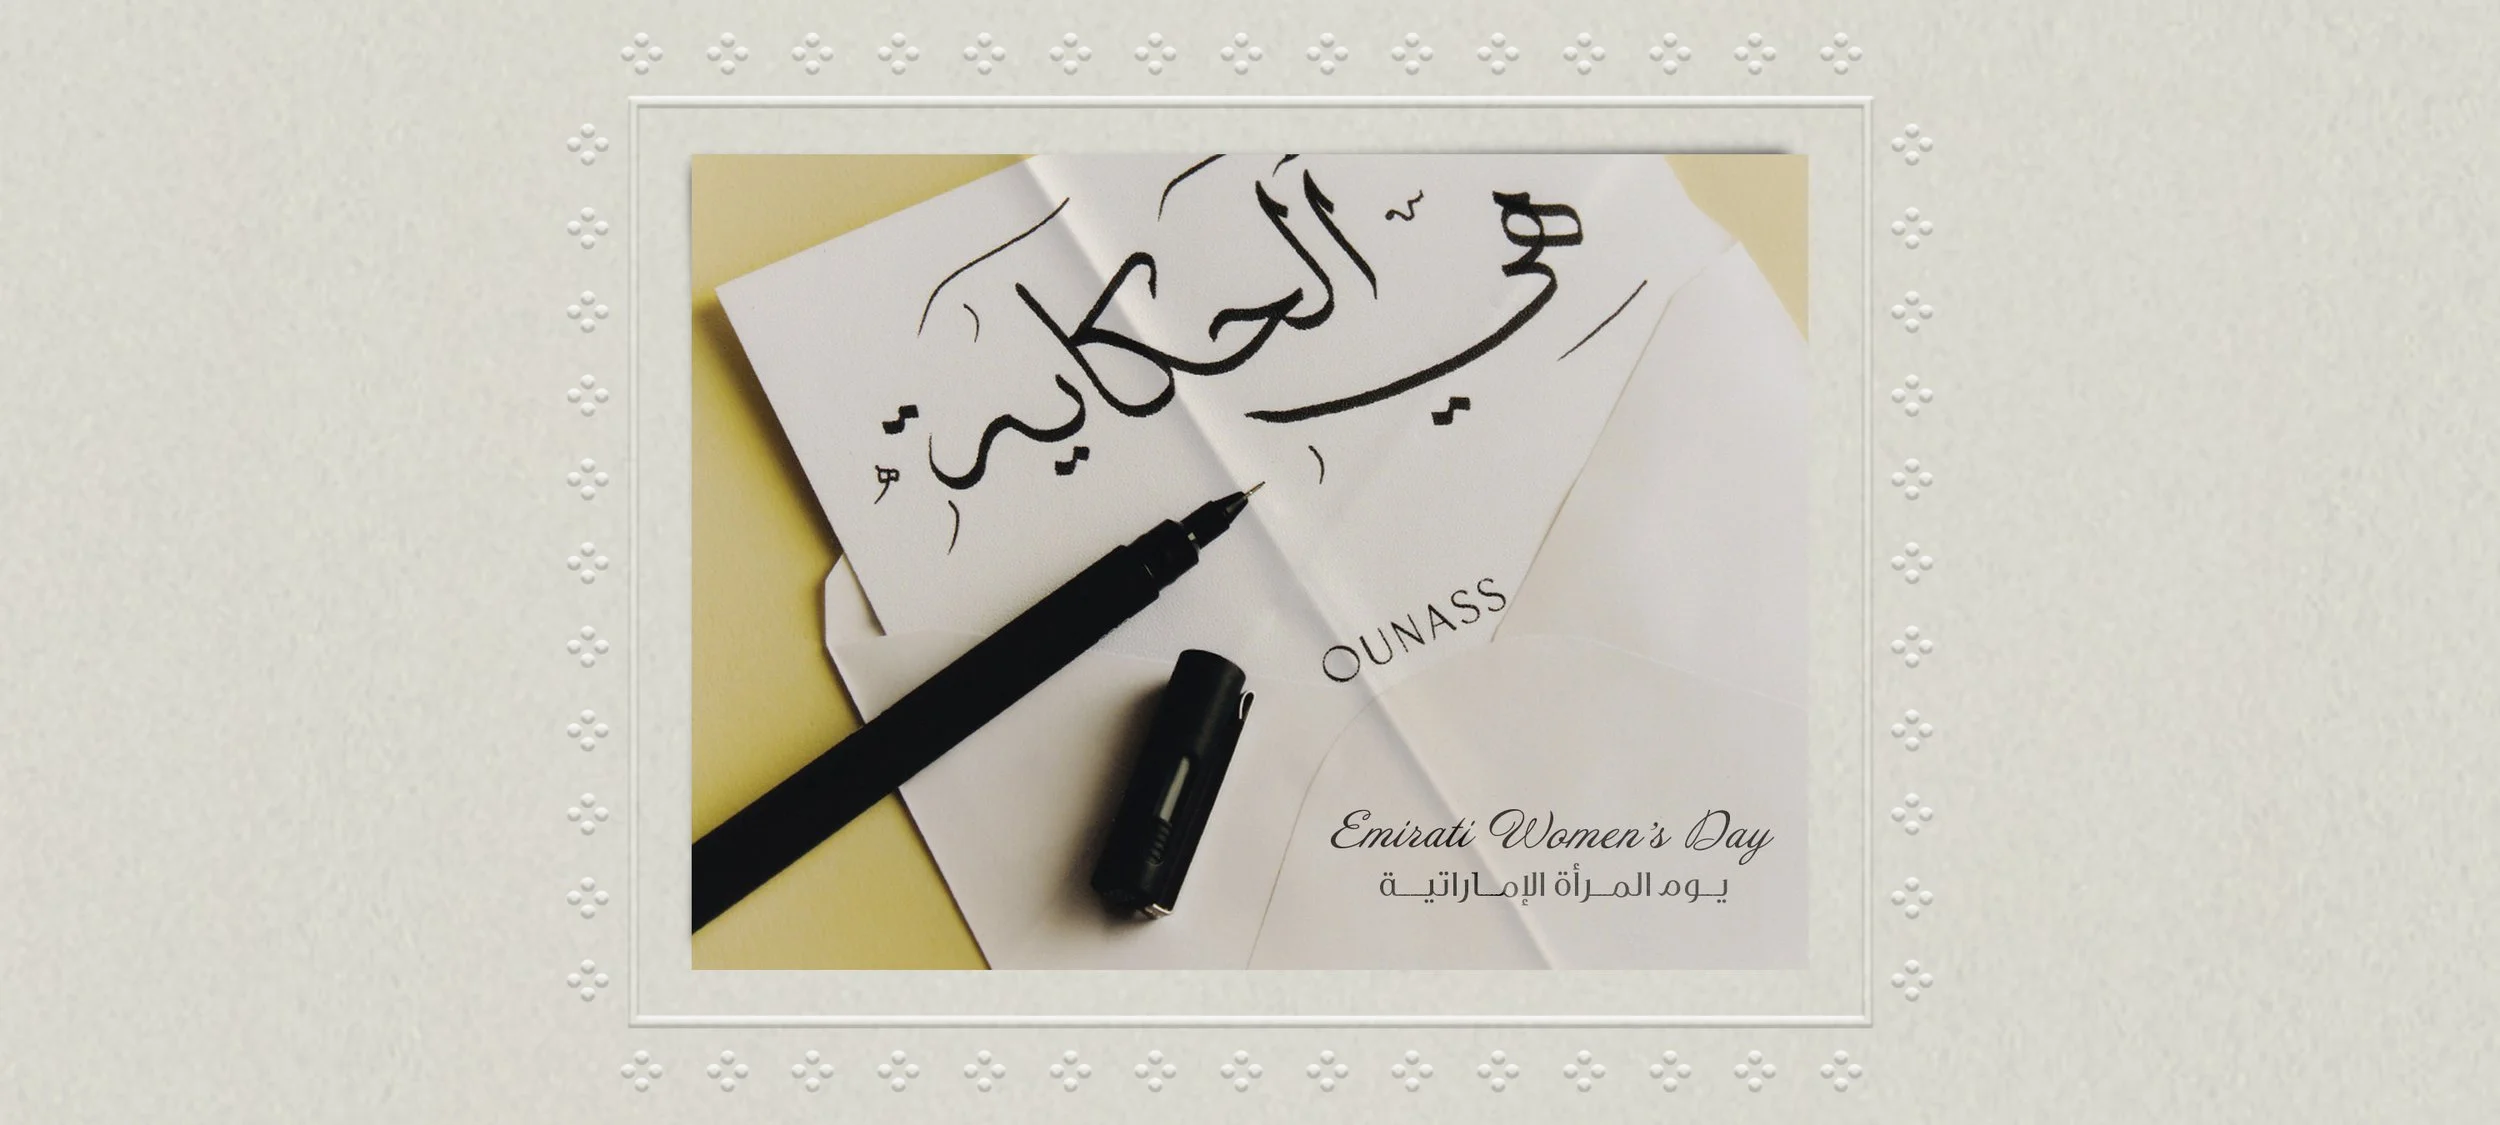 هي الحكاية
OUNASS
Emirati Women's Day
يوم المرأة الإماراتية